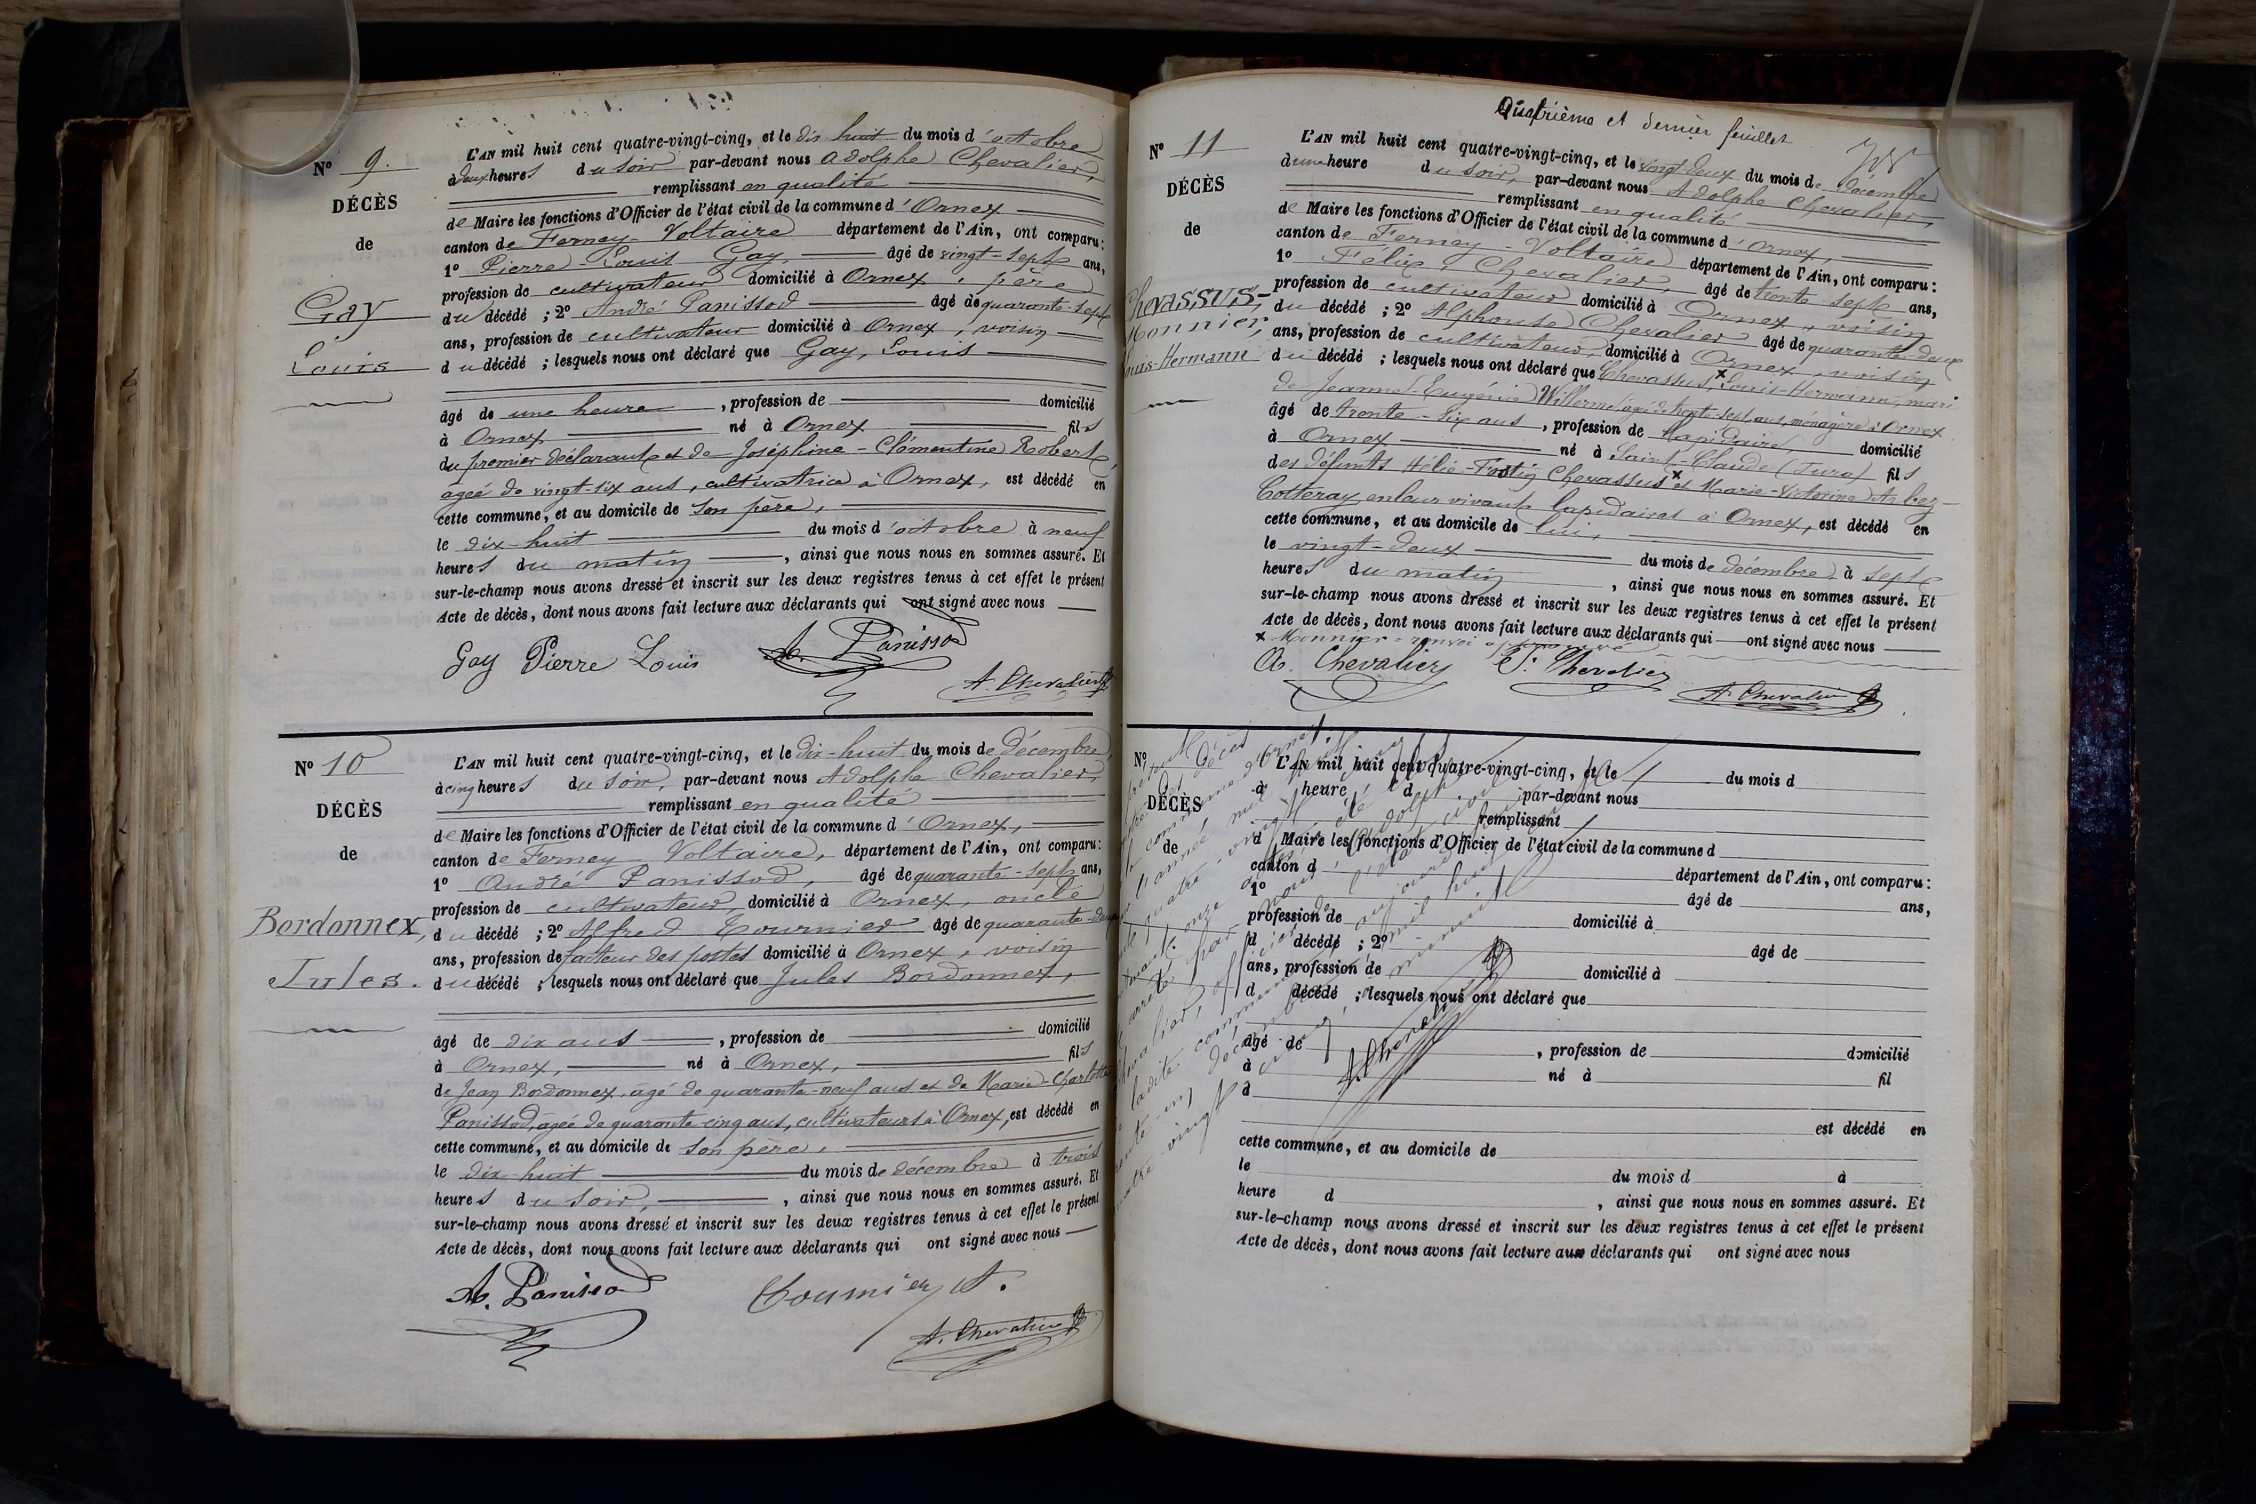 N° 9.
DÉCÈS
de
Gay
Louis
L'AN mil huit cent quatre-vingt-cinq, et le dix huit du mois d'octobre
à deux heures du soir par-devant nous Adolphe Chevalier,
remplissant en qualité
de Maire les fonctions d'Officier de l'état civil de la commune d'Ornex
canton de Ferney-Voltaire département de l'Ain, ont comparu :
1° Pierre-Louis Gay, âgé de vingt-sept ans,
profession de cultivateur domicilié à Ornex, père
du décédé ; 2° André Panissod âgé de quarante-sept
ans, profession de cultivateur domicilié à Ornex, voisin
du décédé ; lesquels nous ont déclaré que Gay, Louis
âgé de une heure, profession de domicilié
à Ornex né à Ornex fils
du premier déclarant et de Joséphine-Clémentine Robert,
agée de vingt-six ans, cultivatrice à Ornex, est décédé en
cette commune, et au domicile de son père,
le dix-huit du mois d'octobre à neuf
heures du matin, ainsi que nous nous en sommes assuré. Et
sur-le-champ nous avons dressé et inscrit sur les deux registres tenus à cet effet le présent
Acte de décès, dont nous avons fait lecture aux déclarants qui ont signé avec nous
Gay Pierre Louis A. Panissod
A. Chevalier
N° 10
DÉCÈS
de
Bordonnex,
Jules.
L'AN mil huit cent quatre-vingt-cinq, et le dix-huit du mois de décembre
à cinq heures du soir, par-devant nous Adolphe Chevalier,
remplissant en qualité
de Maire les fonctions d'Officier de l'état civil de la commune d'Ornex,
canton de Ferney Voltaire, département de l'Ain, ont comparu :
1° André Panissod, âgé de quarante-sept ans,
profession de cultivateur, domicilié à Ornex, oncle
du décédé ; 2° Alfred Tournier âgé de quarante-deux
ans, profession de facteur des postes domicilié à Ornex, voisin
du décédé ; lesquels nous ont déclaré que Jules Bordonnex,
âgé de dix ans, profession de domicilié
à Ornex, né à Ornex, fils
de Jean Bordonnex, agé de quarante-neuf ans et de Marie-Charlotte
Panissod, agée de quarante-cinq ans, cultivateurs à Ornex, est décédé en
cette commune, et au domicile de son père,
le dix-huit du mois de décembre à trois
heures du soir, ainsi que nous nous en sommes assuré. Et
sur-le-champ nous avons dressé et inscrit sur les deux registres tenus à cet effet le présent
Acte de décès, dont nous avons fait lecture aux déclarants qui ont signé avec nous
A. Panissod Tournier A.
A. Chevalier
Quatrième et dernier feuillet
N° 11
DÉCÈS
de
Chevassus-
Monnier,
Louis-Hermann
L'AN mil huit cent quatre-vingt-cinq, et le vingt-deux du mois de décembre
à une heure du soir, par-devant nous Adolphe Chevalier,
remplissant en qualité
de Maire les fonctions d'Officier de l'état civil de la commune d'Ornex,
canton de Ferney-Voltaire département de l'Ain, ont comparu :
1° Félix, Chevalier, âgé de trente-sept ans,
profession de cultivateur domicilié à Ornex, voisin
du décédé ; 2° Alphonse Chevalier âgé de quarante-deux
ans, profession de cultivateur, domicilié à Ornex, voisin
du décédé ; lesquels nous ont déclaré que Chevassus,x Louis-Hermann, mari
de Jeanne Eugénie Willermé, agée de trente-sept ans, ménagère à Ornex
âgé de trente-six ans, profession de lapidaire, domicilié
à Ornex né à Saint-Claude (Jura) fils
des défunts Hélie-Frotin Chevassus x et Marie-Victorine Arbez-
Cotteray, en leur vivant lapidaires à Ornex, est décédé en
cette commune, et au domicile de lui,
le vingt-deux du mois de décembre à sept
heures du matin, ainsi que nous nous en sommes assuré. Et
sur-le-champ nous avons dressé et inscrit sur les deux registres tenus à cet effet le présent
Acte de décès, dont nous avons fait lecture aux déclarants qui ont signé avec nous
x Monnier = renvoi approuvé
A. Chevalier F. Chevalier
A. Chevalier
N°
DÉCÈS
de
L'AN mil huit cent quatre-vingt-cinq, et le du mois d
à heure d par-devant nous
remplissant
d Maire les fonctions d'Officier de l'état civil de la commune d
canton d département de l'Ain, ont comparu :
1° âgé de ans,
profession de domicilié à
d décédé ; 2° âgé de
ans, profession de domicilié à
d décédé ; lesquels nous ont déclaré que
âgé de , profession de domicilié
à né à fil
d
est décédé en
cette commune, et au domicile de
le du mois d à
heure d , ainsi que nous nous en sommes assuré. Et
sur-le-champ nous avons dressé et inscrit sur les deux registres tenus à cet effet le présent
Acte de décès, dont nous avons fait lecture aux déclarants qui ont signé avec nous